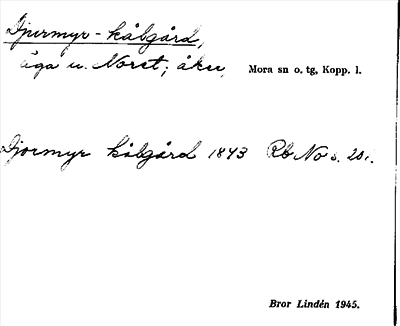 Djurmyr-kålgård,
äga u. Noret; åker,
Mora sn o. tg, Kopp. l.
Djormyr kålgård 1843 Rb No s. 20.
Bror Lindén 1945.